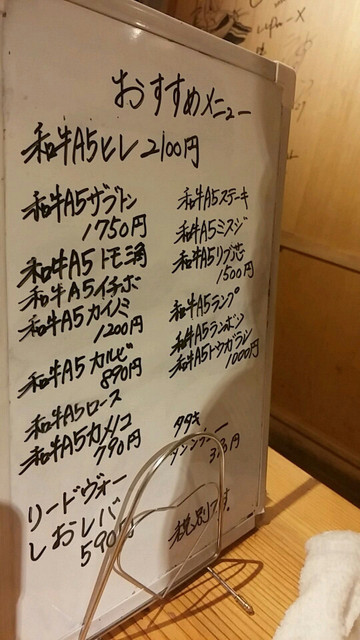 おすすめメニュー
和牛A5ヒレ2100円
和牛A5ザブトン
1750円
和牛A5トモ三角
和牛A5イチボ
和牛A5カイノミ
1200円
和牛A5カルビ
890円
和牛A5ロース
和牛A5カメノコ
790円
リードヴォー
しおレバ
590円
和牛A5ステーキ
和牛A5ミスジ
和牛A5リブ芯
1500円
和牛A5ランプ
和牛A5ランボソ
和牛A5トウガラシ
1000円
タタキ
税別です。